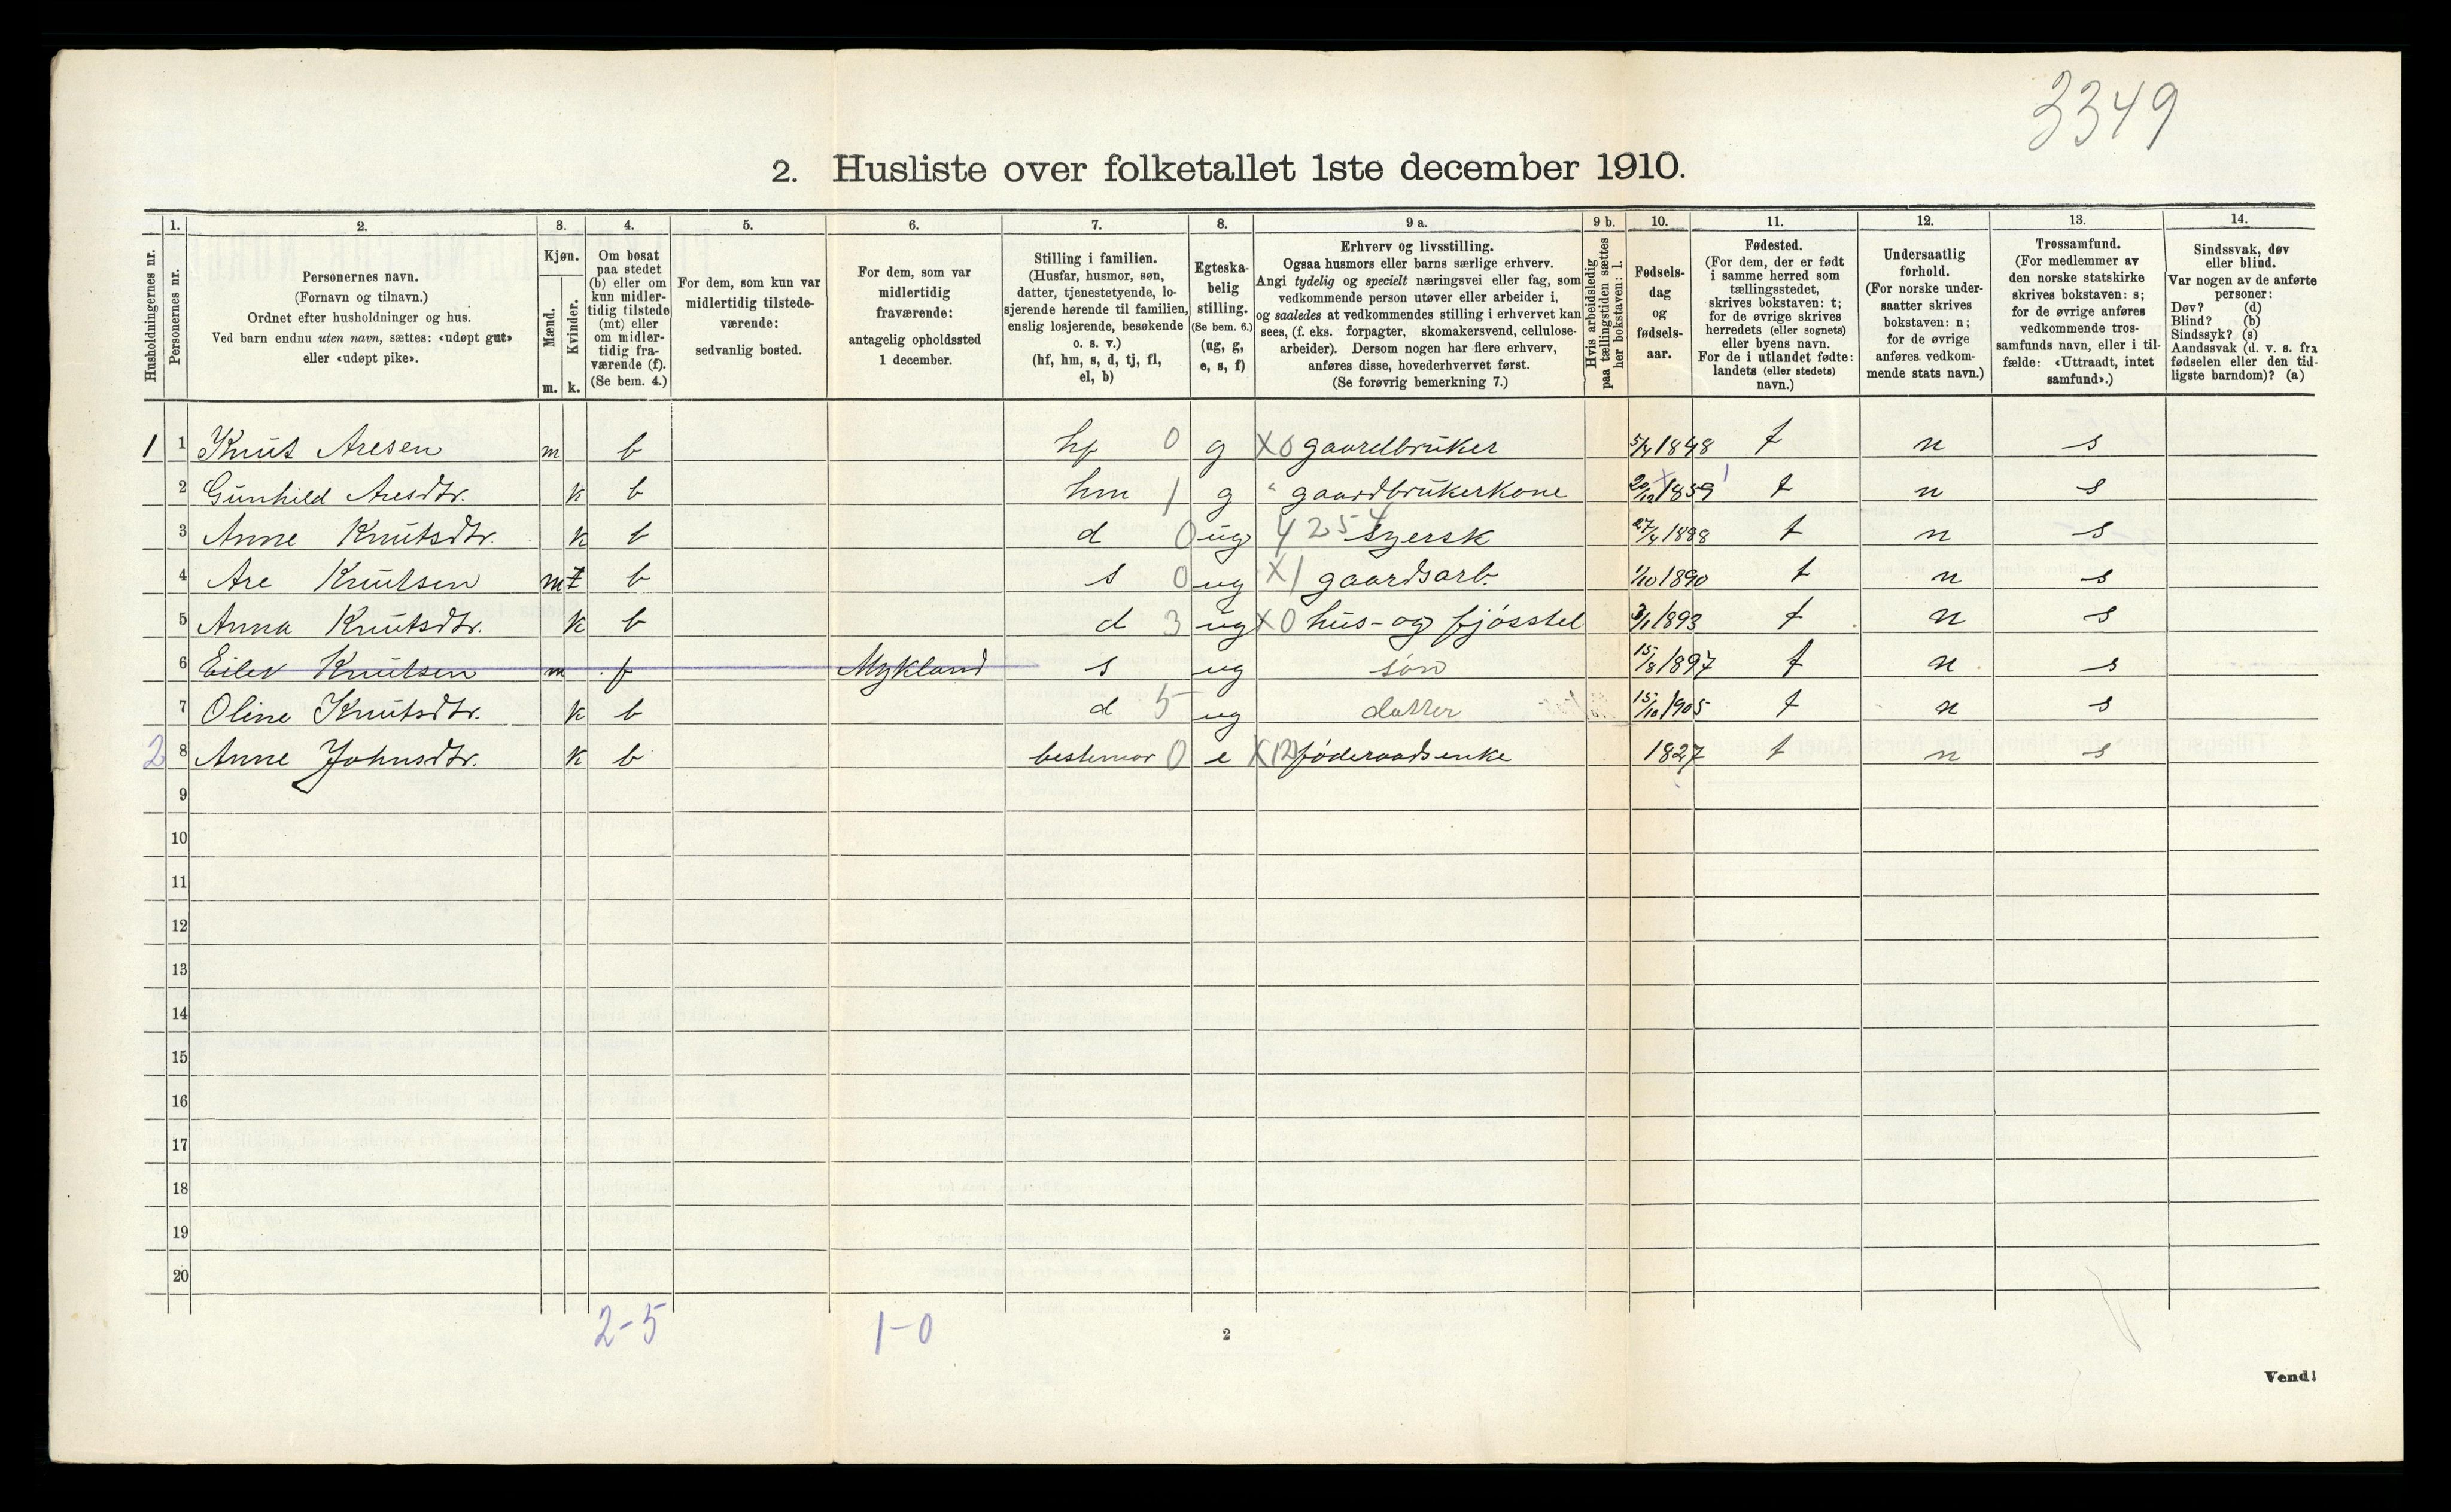 3349
2. Husliste over folketallet 1ste december 1910.
Husholdningernes nr.
1.
Personernes nr.
2.
Personernes navn.
(Fornavn og tilnavn.)
Ordnet efter husholdninger og hus.
Ved barn endnu uten navn, sættes: «udøpt gut»
eller «udøpt pike».
3.
Kjøn.
Mænd.
Kvinder.
m. k.
4.
Om bosat
paa stedet
(b) eller om
kun midler-
tidig tilstede
(mt) eller
om midler-
tidig fra-
værende (f).
(Se bem. 4.)
5.
For dem, som kun var
midlertidig tilstede-
værende:
sedvanlig bosted.
6.
For dem, som var
midlertidig
fraværende:
antagelig opholdssted
1 december.
7.
Stilling i familien.
(Husfar, husmor, søn,
datter, tjenestetyende, lo-
sjerende hørende til familien,
enslig losjerende, besøkende
o. s. v.)
(hf, hm, s, d, tj, fl,
el, b)
8.
Egteska-
belig
stilling.
(Se bem. 6.)
(ug, g,
e, s, f)
9 a.
Erhverv og livsstilling.
Ogsaa husmors eller barns særlige erhverv.
Angi tydelig og specielt næringsvei eller fag, som
vedkommende person utøver eller arbeider i,
og saaledes at vedkommendes stilling i erhvervet kan
sees, (f. eks. forpagter, skomakersvend, cellulose-
arbeider). Dersom nogen har flere erhverv,
anføres disse, hovederhvervet først.
(Se forøvrig bemerkning 7.)
9 b.
Hvis arbeidsledig
paa tællingstiden sættes
her bokstaven: l.
10.
Fødsels-
dag
og
fødsels-
aar.
11.
Fødested.
(For dem, der er født
i samme herred som
tællingsstedet,
skrives bokstaven: t;
for de øvrige skrives
herredets (eller sognets)
eller byens navn.
For de i utlandet fødte:
landets (eller stedets)
navn.)
12.
Undersaatlig
forhold.
(For norske under-
saatter skrives
bokstaven: n;
for de øvrige
anføres vedkom-
mende stats navn.)
13.
Trossamfund.
(For medlemmer av
den norske statskirke
skrives bokstaven: s;
for de øvrige anføres
vedkommende tros-
samfunds navn, eller i til-
fælde: «Uttraadt, intet
samfund».)
14.
Sindssvak, døv
eller blind.
Var nogen av de anførte
personer:
Døv? (d)
Blind? (b)
Sindssyk? (s)
Aandssvak (d. v. s. fra
fødselen eller den tid-
ligste barndom)? (a)
1 1 Knut Aresen m b hf 0 g X0 gaardbruker 5/4 1848 t n s
2 Gunhild Aresdtr. k b hm 1 g " gaardbrukerkone 20/12 1859 t n s
3 Anne Knutsdtr. k b d 0 ug 4254 syersk 27/4 1888 t n s
4 Are Knutsen m b s 0 ug X1 gaardsarb. 1/10 1890 t n s
5 Anna Knutsdtr. k b d 3 ug X0 hus- og fjøsstel 3/1 1893 t n s
6 Eilev Knutsen m f Mykland s ug søn 15/8 1897 t n s
7 Oline Knutsdtr. k b d 5 ug datter 15/10 1905 t n s
2 8 Anne Johnsdtr. k b bestemor 0 e X12 føderaadsenke 1827 t n s
9
10
11
12
13
14
15
16
17
18
19
20
2-5 1-0
2
Vend!